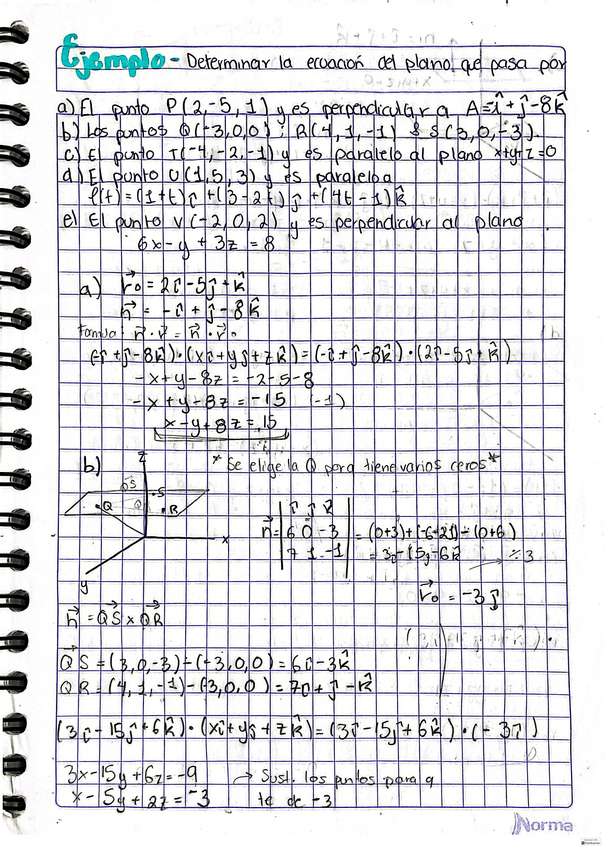 Ejemplo - Determinar la ecuación del plano que pasa por
a) El punto P(2,-5,1) y es perpendicular a A=-î+ĵ-8k̂
b) Los puntos Q(-3,0,0); R(4,1,-1) & S(3,0,-3).
c) El punto T(-4,-2,-1) y es paralelo al plano x+y+z=0
d) El punto U(1,5,3) y es paralelo a
l(t)=(1+t)î+(3-2t)ĵ+(4t-1)k̂
e) El punto V(-2,0,2) y es perpendicular al plano
6x-y+3z=8
a) r⃗o=2î-5ĵ+k̂
n⃗=-î+ĵ-8k̂
Formula: n⃗·r⃗=n⃗·r⃗o
(-î+ĵ-8k̂)·(xî+yĵ+zk̂)=(-î+ĵ-8k̂)·(2î-5ĵ+k̂)
-x+y-8z=-2-5-8
-x+y-8z=-15 (-1)
x-y+8z=15
b) * Se elige la Q porq tiene varios ceros *
z
QS S
Q R
x
y
î ĵ k̂
n⃗= 6 0 -3 =(0+3)+(-6+21)-(0+6)
7 1 -1 =3î-15ĵ-6k̂ ÷3
r⃗o=-3ĵ
n⃗=QS⃗×QR⃗
Q⃗S=(3,0,-3)-(-3,0,0)=6î-3k̂
QR=(4,1,-1)-(-3,0,0)=7î+ĵ-k̂
(3î-15ĵ+6k̂)·(xî+yĵ+zk̂)=(3î-15ĵ+6k̂)·(-3î)
3x-15y+6z=-9 → Sust. los puntos para q
x-5y+2z=-3 te de -3
Norma